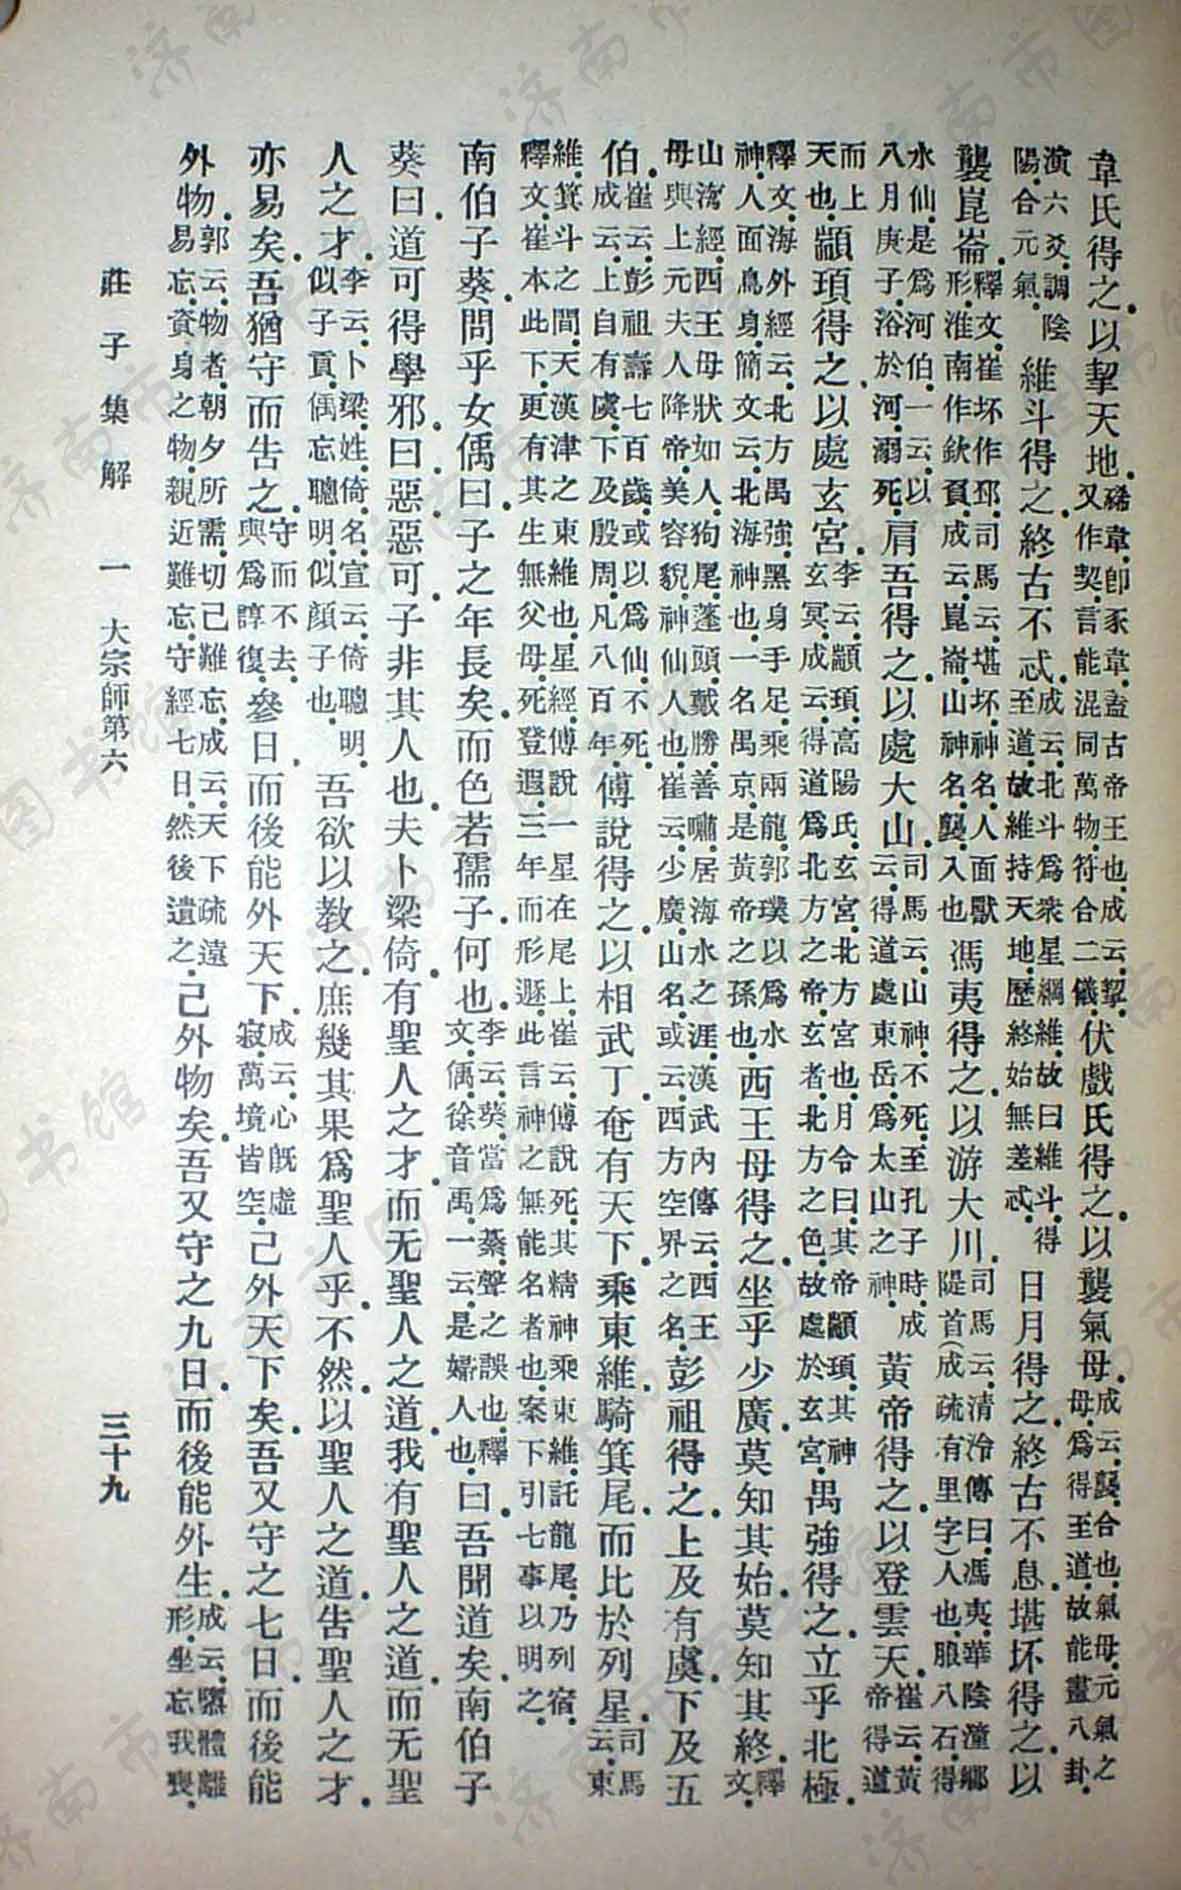 韋氏得之.以挈天地.豨韋.卽豕韋.蓋古帝王也.成云.挈.又作契.言能混同萬物.符合二儀.伏戲氏得之.以襲氣母.成云.襲.合也.氣母.元氣之母.爲得至道.故能畫八卦.
演六爻.調陰陽.合元氣.維斗得之.終古不忒.成云.北斗爲衆星綱維.故曰維斗.得至道.故維持天地.歷終始.無差忒.日月得之.終古不息.堪坏得之.以
襲崑崙.釋文.崔坏作邳.司馬云.堪坏.神名.人面獸形.淮南作欽負.成云.崑崙.山神名.襲.入也.馮夷得之.以游大川.司馬云.清泠傳曰.馮夷.華陰潼鄉隄首(成疏有里字)人也.服八石.得
水仙.是爲河伯.一云.以八月庚子.浴於河.溺死.肩吾得之.以處大山.司馬云.山神.不死.至孔子時.成云.得道處東岳.爲太山之神.黃帝得之.以登雲天.崔云.黃帝得道
而上天也.顓頊得之.以處玄宮.李云.顓頊.高陽氏.玄宮.北方宮也.月令曰.其帝顓頊.其神玄冥.成云.得道爲北方之帝.玄者.北方之色.故處於玄宮.禺強得之.立乎北極.
釋文.海外經云.北方禺強.黑身手足.乘兩龍.郭璞以爲水神.人面鳥身.簡文云.北海神也.一名禺京.是黃帝之孫也.西王母得之.坐乎少廣.莫知其始.莫知其終.釋文.
山海經.西王母狀如人.狗尾.蓬頭.戴勝.善嘯.居海水之涯.漢武內傳云.西王母與上元夫人降帝.美容貌.神仙人也.崔云.少廣.山名.或云.西方空界之名.彭祖得之.上及有虞.下及五
伯.崔云.彭祖壽七百歲.或以爲仙.不死.成云.上自有虞.下及殷周.凡八百年.傅說得之.以相武丁.奄有天下.乘東維.騎箕尾.而比於列星.司馬云.東
維.箕斗之間.天漢津之東維也.星經.傅說一星在尾上.崔云.傅說死.其精神乘東維.託龍尾.乃列宿.釋文.崔本此下.更有其生無父母.死登遐.三年而形遯.此言神之無能名者也.案下引七事以明之.
南伯子葵.問乎女偊曰.子之年長矣.而色若孺子.何也.李云.葵當爲綦.聲之誤也.釋文.偊.徐音禹.一云.是婦人也.曰.吾聞道矣.南伯子
葵曰.道可得學邪.曰.惡.惡可.子非其人也.夫卜梁倚.有聖人之才.而无聖人之道.我有聖人之道.而无聖
人之才.李云.卜梁.姓.倚.名.宣云.倚聰明.似子貢.偊忘聰明.似顏子也.吾欲以教之.庶幾其果爲聖人乎.不然.以聖人之道.告聖人之才.
亦易矣.吾猶守而告之.守而不去.與爲諄復.參日.而後能外天下.成云.心既虛寂.萬境皆空.已外天下矣.吾又守之七日.而後能
外物.郭云.物者.朝夕所需.切己難忘.成云.天下疏遠易忘.資身之物.親近難忘.守經七日.然後遺之.已外物矣.吾又守之九日.而後能外生.成云.隳體離形.坐忘我喪.
莊子集解 一 大宗師第六 三十九
济南市图书馆